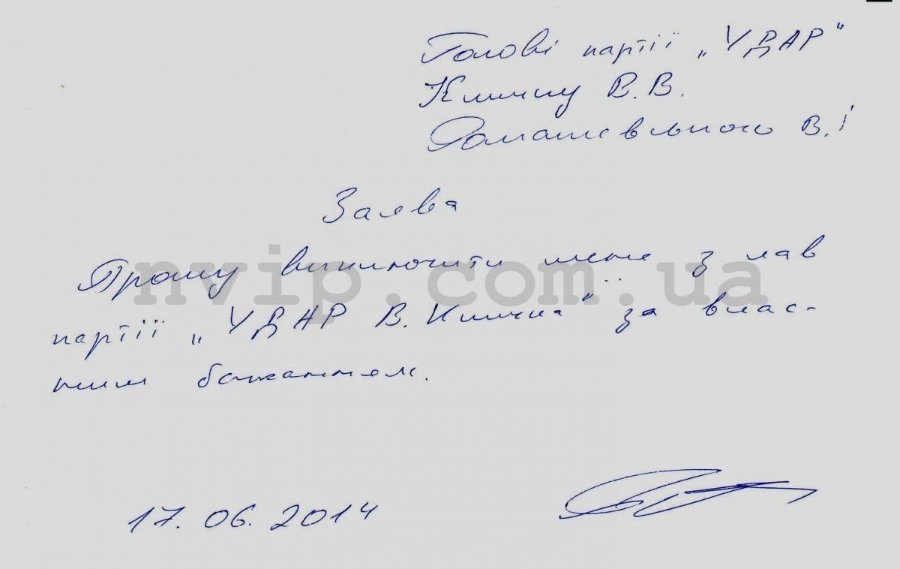 Голові партії „УДАР"
Кличку В.В.
В.І
Заява
Прошу виключити мене з лав
партії „УДАР В. Кличка" за влас-
ним бажанням.
17.06.2014
nvip.com.ua